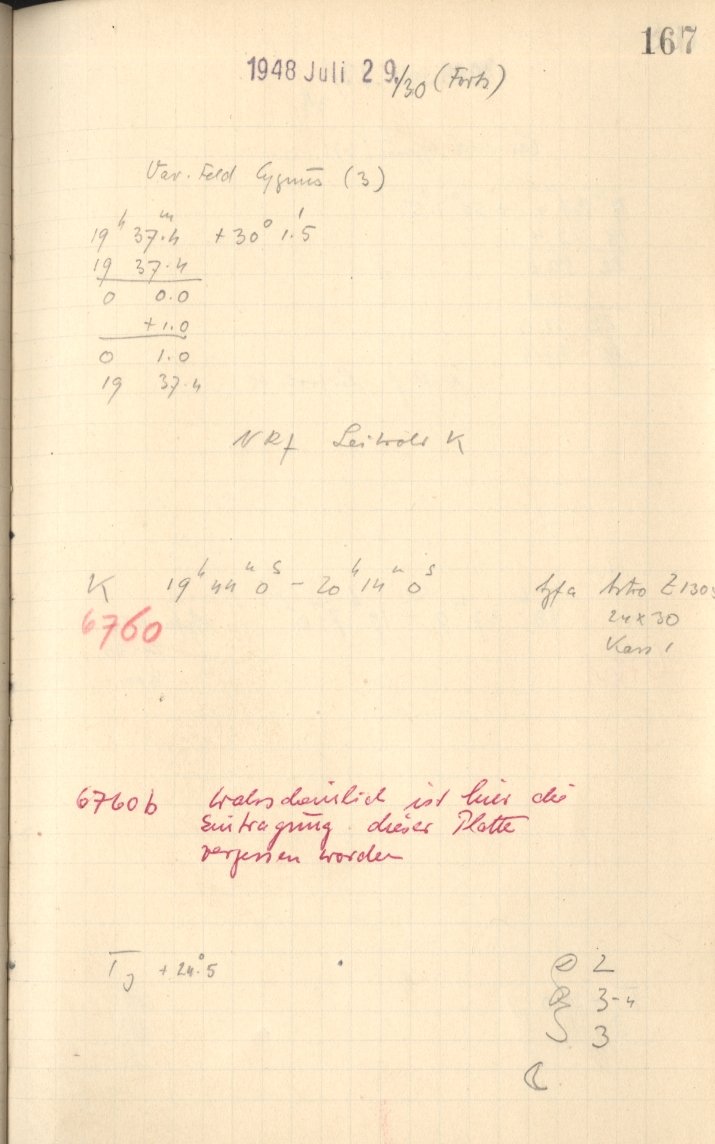 167
1948 Juli 29./30 (Forts)
Var. Feld Cygnus (3)
19ʰ 37ᵐ.4 +30° 1'.5
19 37.4
0 0.0
+1.0
0 1.0
19 37.4
NRf Leitrohr K
K 19ʰ44ᵐ0ˢ – 20ʰ14ᵐ0ˢ Agfa Astro Z 130
6760 24x30
Kass 1
6760b Wahrscheinlich ist hier die
Eintragung dieser Platte
vergessen worden
+24°.5
2
3-4
3